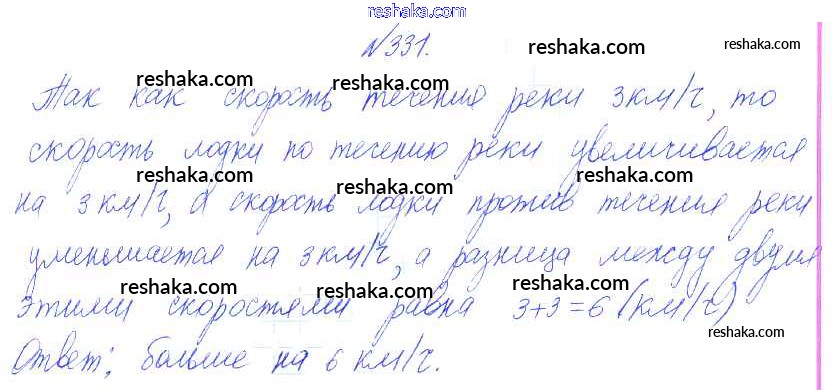 reshaka.com
№331.
reshaka.com
reshaka.com
reshaka.com
Так как скорость течения реки 3 км/ч, то
reshaka.com
reshaka.com
скорость лодки по течению реки увеличивается
reshaka.com
reshaka.com
на 3 км/ч, а скорость лодки против течения реки
reshaka.com
reshaka.com
уменьшается на 3 км/ч, а разница между двумя
reshaka.com
reshaka.com
этими скоростями равна 3+3=6 (км/ч)
reshaka.com
reshaka.com
Ответ: больше на 6 км/ч.